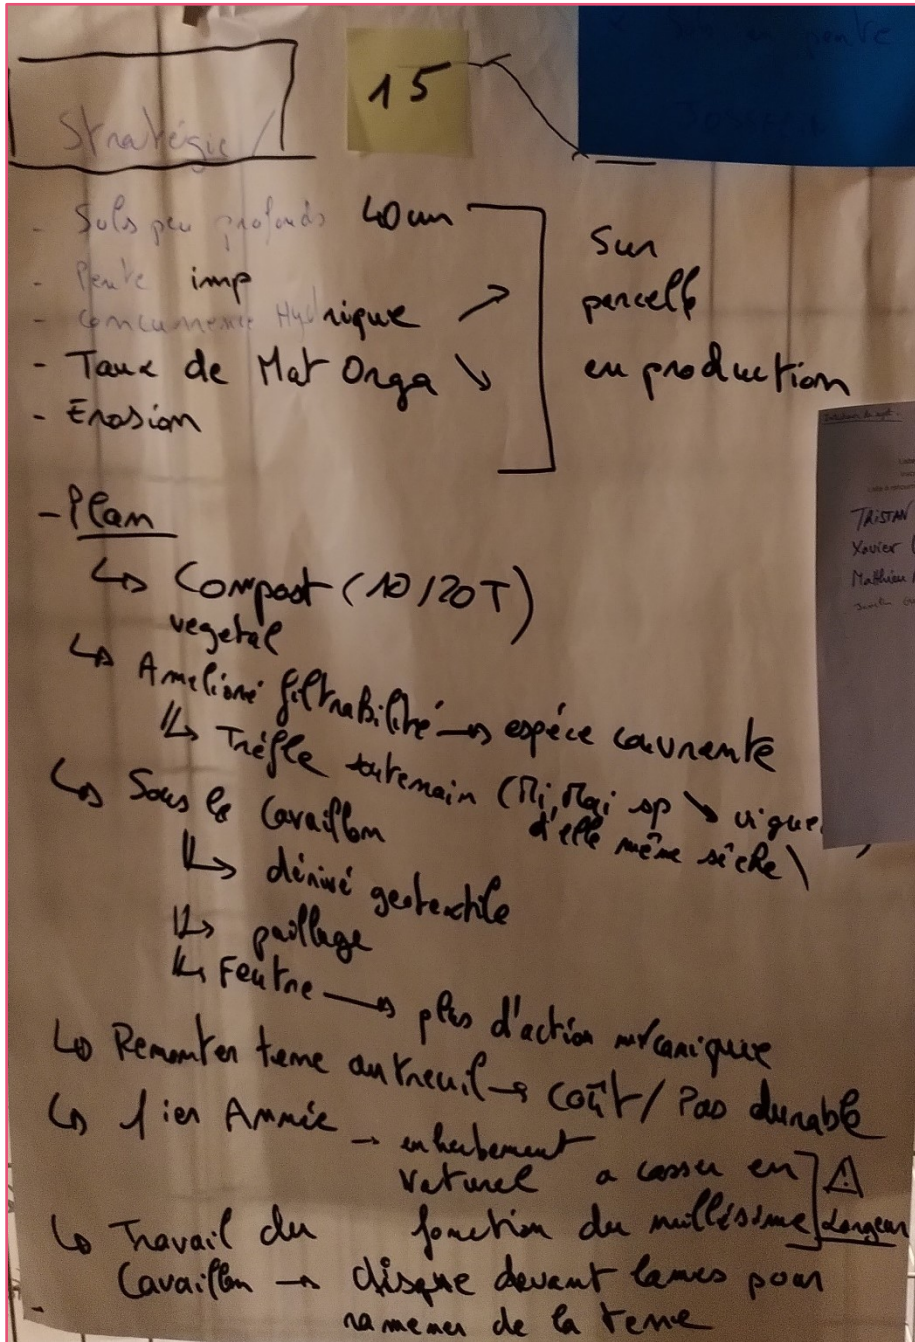 15
Stratégie /
- Sols peu profonds 40 cm
- Pente imp
- Concurrence Hydrique ↗
- Taux de Mat Orga ↘
- Erosion
Sur
parcelle
en production
- Plan
↳ Compost (10/20T)
vegetal
↳ Amelioré filtrabilité → espéce couvrente
↳ Tréfle souterrain (Mi, Mai sp ↘ vigue
d'elle même sèche
↳ Sous le Cavaillon
↳ dérivé geotextile
↳ paillage
↳ Feutre → plus d'action mécanique
↳ Remonter terre au treuil → Coût / Pas durable
↳ 1ier Année → enherbement
naturel a casser en
fonction du millésime
⚠
↳ Travail du
Cavaillon → disque devant lames pour
ramener de la terre
TRISTAN
Xavier
Matthieu